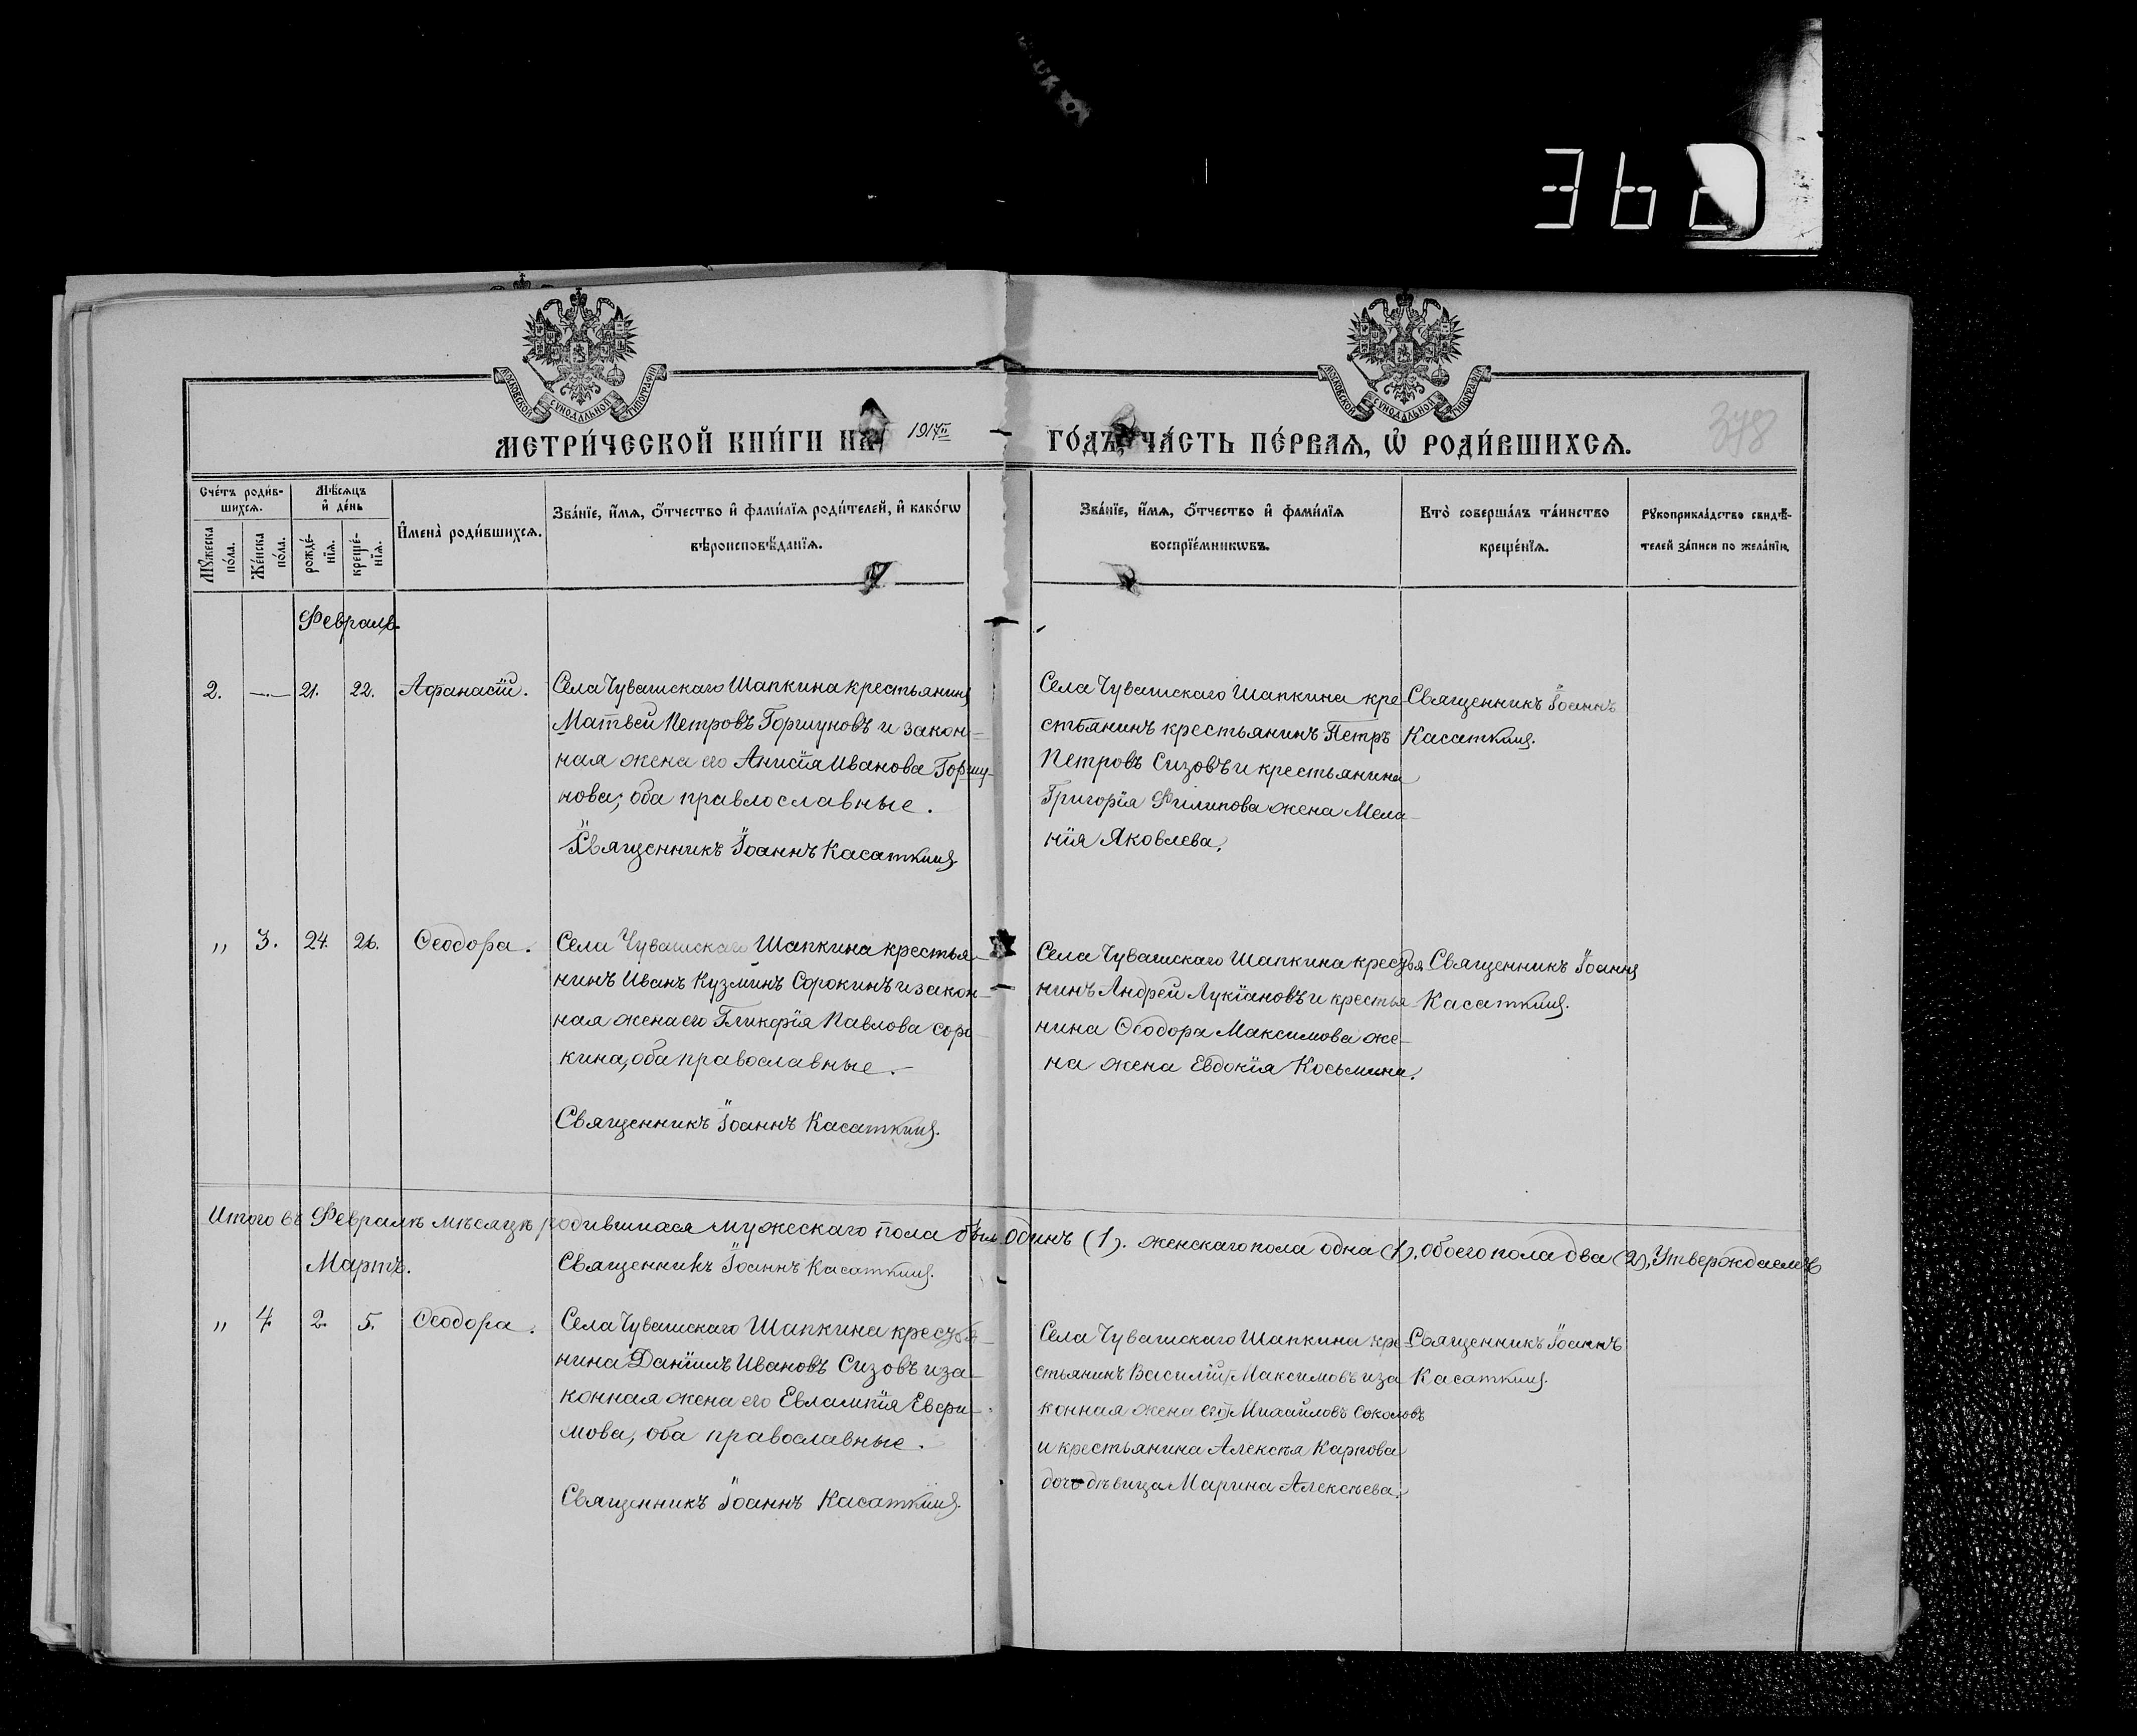 362
МОСКОВСКОЙ СУНОДАЛЬНОЙ ТИПОГРАФІИ
МОСКОВСКОЙ СУНОДАЛЬНОЙ ТИПОГРАФІИ
МЕТРИ́ЧЕСКОЙ КНИ́ГИ НА 1917 ГО́ДЪ, ЧА́СТЬ ПЕ́РВАѦ, Ѡ҆ РОДИ́ВШИХСѦ.
378
Сче́тъ роди́в-
шихсѧ.
Мꙋ́жеска
по́ла.
Же́нска
по́ла.
Мѣ́сѧцъ
и҆ де́нь
рожде́-
нїѧ.
креще́-
нїѧ.
И҆мена̀ роди́вшихсѧ.
Зва́нїе, и҆́мѧ, ѻ҆́тчество и҆ фами́лїѧ роди́телей, и҆ како́гѡ
вѣроисповѣ́данїѧ.
Зва́нїе, и҆́мѧ, ѻ҆́тчество и҆ фами́лїѧ
воспрїе́мникѡвъ.
Кто̀ соверша́лъ та́инство
креще́нїѧ.
Рꙋкоприкла́дство свидѣ́-
телей за́писи по жела́нїю.
Февраль.
2. — 21. 22. Афанасій.
Села Чувашскаго Шапкина крестьянинъ
Матвей Петровъ Горшуновъ и закон-
ная жена его Анисія Иванова Горшу-
нова; оба правлославные.
Священникъ Іоаннъ Касаткинъ
Села Чувашскаго Шапкина кре
стьянинъ крестьянинъ Петръ
Петровъ Сизовъ и крестьянина
Григорія Филипова жена Мела-
нія Яковлева.
Священникъ Іоаннъ
Касаткинъ.
" 3. 24. 26. Ѳеодора.
Села Чувашскаго Шапкина крестья-
нинъ Иванъ Кузминъ Сорокинъ и закон-
ная жена его Гликерія Павлова Соро-
кина, оба православные.
Священникъ Іоаннъ Касаткинъ.
Села Чувашскаго Шапкина крестья
нинъ Андрей Лукіановъ и крестья-
нина Ѳеодора Максимова же-
на жена Евдокія Косьмина.
Священникъ Іоаннъ
Касаткинъ.
Итого въ Февралѣ мѣсяцѣ родившихся мужескаго пола былъ одинъ (1). женскаго пола одна (1), обоего пола два (2), Утверждаемъ
Мартъ.
Священникъ Іоаннъ Касаткинъ.
" 4 2. 5. Ѳеодора.
Села Чувашскаго Шапкина крестья-
нина Даніилъ Ивановъ Сизовъ и за-
конная жена его Евлампія Евфи-
мова, оба православные.
Священникъ Іоаннъ Касаткинъ.
Села Чувашскаго Шапкина кре
стьянинъ Василій Максимовъ и за
конная жена его Михайловъ Соколовъ
и крестьянина Алексѣя Карпова
дочь дѣвица Марина Алексѣева.
Священникъ Іоаннъ
Касаткинъ.